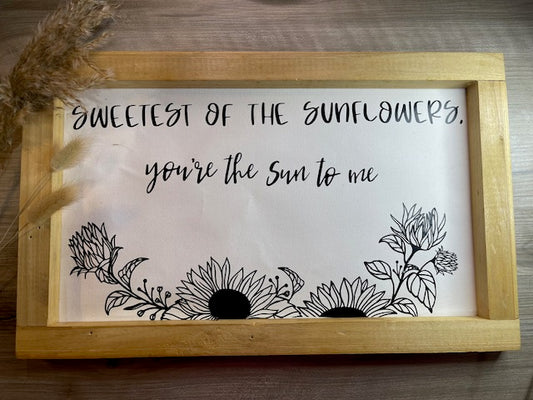 SWEETEST OF THE SUNFLOWERS,
you're the sun to me